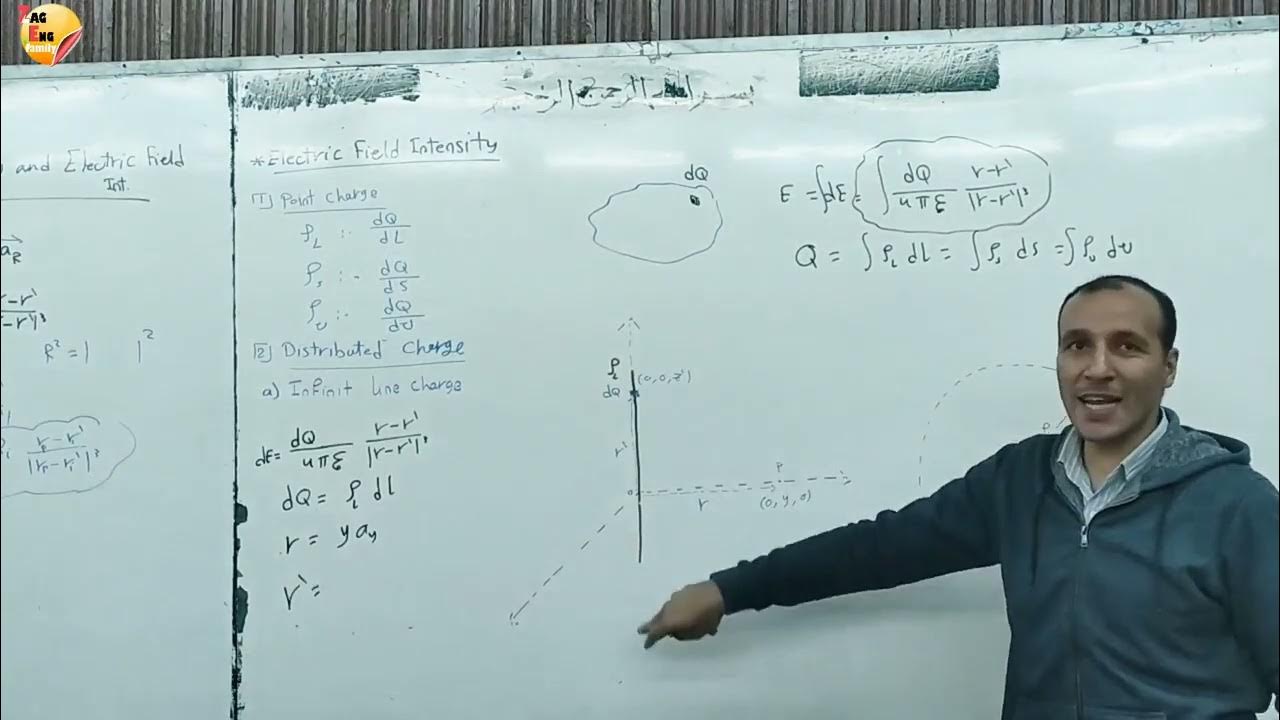 ZAG
ENG
family
بسم الله الرحمن الرحيم
and Electric Field
Int.
a_R
r-r'
R² = 1 1²
r_P - r_i'
|r_P - r_i'|³
*Electric Field Intensity
1] Point charge
ρ_L :- dQ/dL
ρ_s :- dQ/ds
ρ_v :- dQ/dv
2] Distributed charge
a) Infinit line charge
dE = dQ/4πε r-r'/|r-r'|³
dQ = ρ_L dl
r = y a_y
r' =
dQ
E = ∫dE = ∫ dQ/4πε r-r'/|r-r'|³
Q = ∫ρ_L dL = ∫ρ_s ds = ∫ρ_v dv
ρ_L
dQ (0,0,z')
r'
0
r
P
(0,y,0)